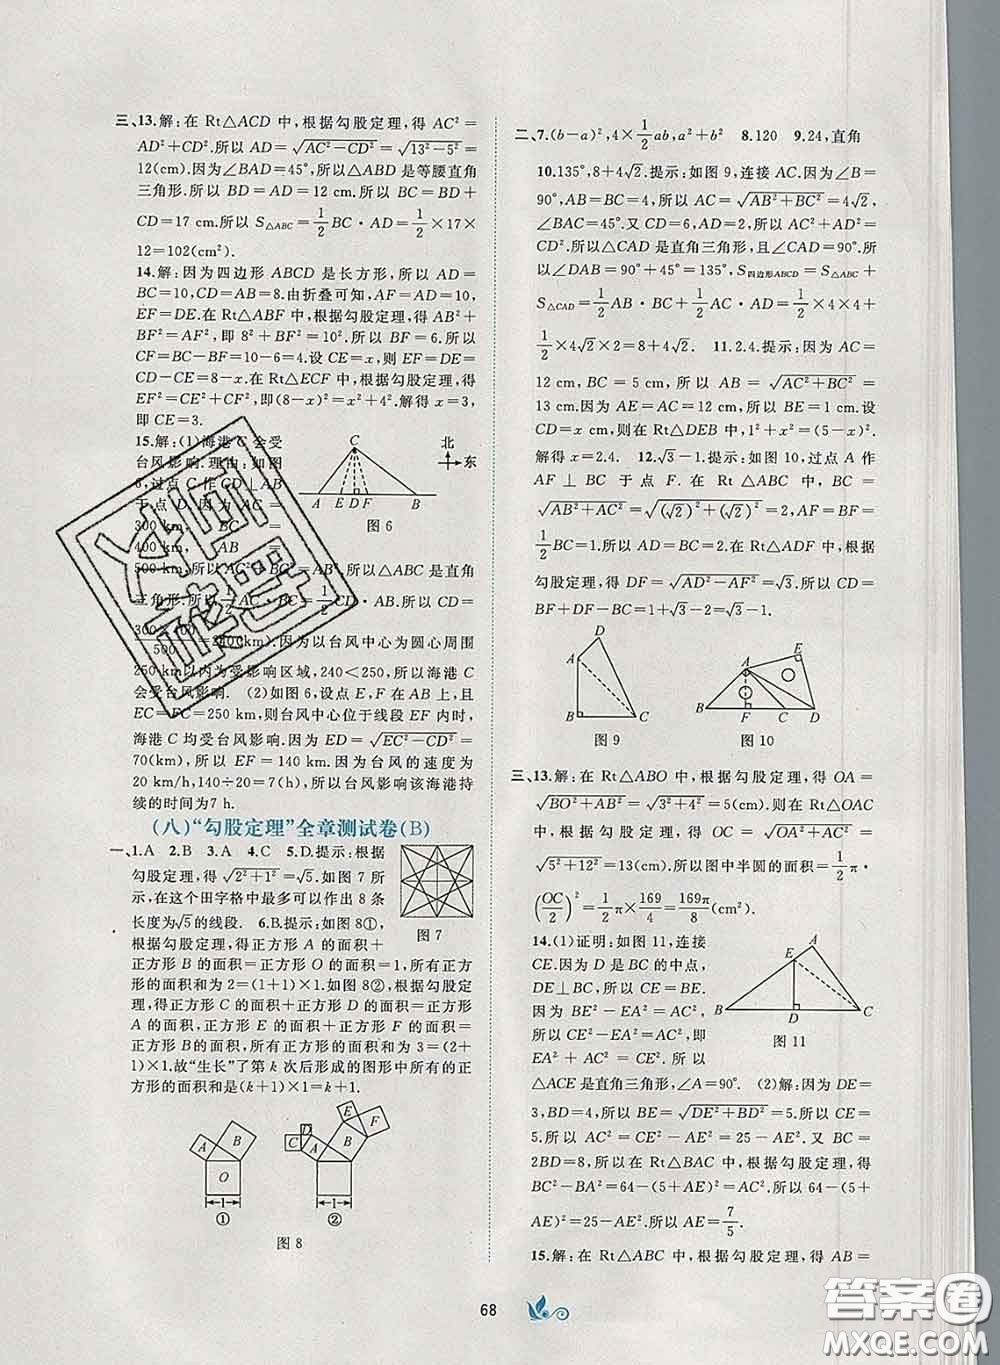 三、13.解：在 Rt△ACD 中，根据勾股定理，得 AC²=
AD²+CD².所以 AD=√(AC²-CD²)=√(13²-5²)=
12(cm).因为∠BAD=45°,所以△ABD 是等腰直角
三角形.所以 BD=AD=12 cm.所以 BC=BD+
CD=17 cm.所以 S△ABC=1/2 BC·AD=1/2×17×
12=102(cm²).
14.解：因为四边形 ABCD 是长方形,所以 AD=BC=
10,CD=AB=8.由折叠可知,AF=AD=10,
EF=DE.在 Rt△ABF 中,根据勾股定理,得 AB²+
BF²=AF²,即 8²+BF²=10².所以 BF=6.所以
CF=BC-BF=10-6=4.设 CE=x,则 EF=DE=
CD-CE=8-x.在 Rt△ECF 中,根据勾股定理,得
EF²=CE²+CF²,即(8-x)²=x²+4².解得 x=3,
即 CE=3.
15.解：(1)海港 C 会受
台风影响.理由：如图
6,过点 C 作 CD⊥AB
于点 D.因为 AC=
300 km, BC=
400 km, AB=
500 km,所以 AC²+BC²=AB².所以△ABC 是直角
三角形.所以 1/2 AC·BC=1/2 CD·AB.所以 CD=
300×400/500=240(km).因为以台风中心为圆心周围
250 km以内为受影响区域,240<250,所以海港 C
会受台风影响. (2)如图 6,设点 E,F 在 AB 上,且
EC=FC=250 km,则台风中心位于线段 EF 内时,
海港 C 均受台风影响.因为 ED=√(EC²-CD²)=
70(km),所以 EF=140 km.因为台风的速度为
20 km/h,140÷20=7(h),所以台风影响该海港持
续的时间为7 h.
C
北
东
A E D F B
图 6
(八)“勾股定理”全章测试卷(B)
一、1.A 2.B 3.A 4.C 5.D.提示：根据
勾股定理,得√(2²+1²)=√5.如图 7 所
示,在这个田字格中最多可以作出 8 条
长度为√5的线段. 6.B.提示：如图 8①,
根据勾股定理,得正方形 A 的面积+
正方形 B 的面积=正方形 O 的面积=1,所有正方
形的面积和为 2=(1+1)×1.如图 8②,根据勾股定
理,得正方形 C 的面积+正方形 D 的面积=正方形
A 的面积,正方形 E 的面积+正方形 F 的面积=
正方形 B的面积,所有正方形的面积和为 3=(2+
1)×1.故“生长”了第 k 次后形成的图形中所有的正
方形的面积和是(k+1)×1=k+1.
图 7
A B O 1 ①
C D A B E F 1 ②
图 8
二、7.(b-a)²,4×1/2 ab,a²+b² 8.120 9.24,直角
10.135°,8+4√2.提示：如图 9,连接 AC.因为∠B=
90°,AB=BC=4,所以 AC=√(AB²+BC²)=4√2,
∠BAC=45°.又 CD=6,AD=2,所以 AC²+AD²=
CD².所以△CAD 是直角三角形,且∠CAD=90°.所
以∠DAB=90°+45°=135°,S四边形ABCD=S△ABC+
S△CAD=1/2 AB·BC+1/2 AC·AD=1/2×4×4+
1/2×4√2×2=8+4√2. 11.2.4.提示：因为 AC=
12 cm,BC=5 cm,所以 AB=√(AC²+BC²)=
13 cm.因为 AE=AC=12 cm,所以 BE=1 cm.设
CD=x cm,则在 Rt△DEB 中,1²+x²=(5-x)².
解得 x=2.4. 12.√3-1.提示：如图 10,过点 A 作
AF⊥BC 于点 F.在 Rt△ABC 中,BC=
√(AB²+AC²)=√((√2)²+(√2)²)=2,所以 AF=BF=
1/2 BC=1.所以 FC=BC-BF=1.在 Rt△ADF 中,根据
勾股定理,得 DF=√(AD²-AF²)=√3.所以 CD=BF+
DF-BC=1+√3-2=√3-1.
D A B C
图 9
A E B F C D
图 10
三、13.解：在 Rt△ABO 中,根据勾股定理,得 OA=
√(BO²+AB²)=√(4²+3²)=5(cm).在 Rt△OAC
中,根据勾股定理,得 OC=√(OA²+AC²)=
√(5²+12²)=13(cm).所以图中半圆的面积=1/2 π·
(OC/2)²=1/2 π×169/4=169π/8 (cm²).
14.(1)证明：如图 11,连接
CE.因为 D 是 BC 的中点,
DE⊥BC,所以 CE=BE.
因为 BE²-EA²=AC²,
所以 CE²-EA²=AC²,即
EA²+AC²=CE².所以
△ACE是直角三角形,∠A=90°. (2)解：因为 DE=
3,BD=4,所以 BE=√(DE²+BD²)=5.所以 CE=
5.所以 AC²=CE²-AE²=25-AE².又 BC=
2BD=8,所以在 Rt△BAC 中,根据勾股定理,得
BC²-BA²=64-(5+AE)²=AC².所以 64-(5+
AE)²=25-AE².所以 AE=7/5.
A E B D C
图 11
15.解：在 Rt△ABC 中,根据勾股定理,得 AB=
68
答案圈
MXQE.COM